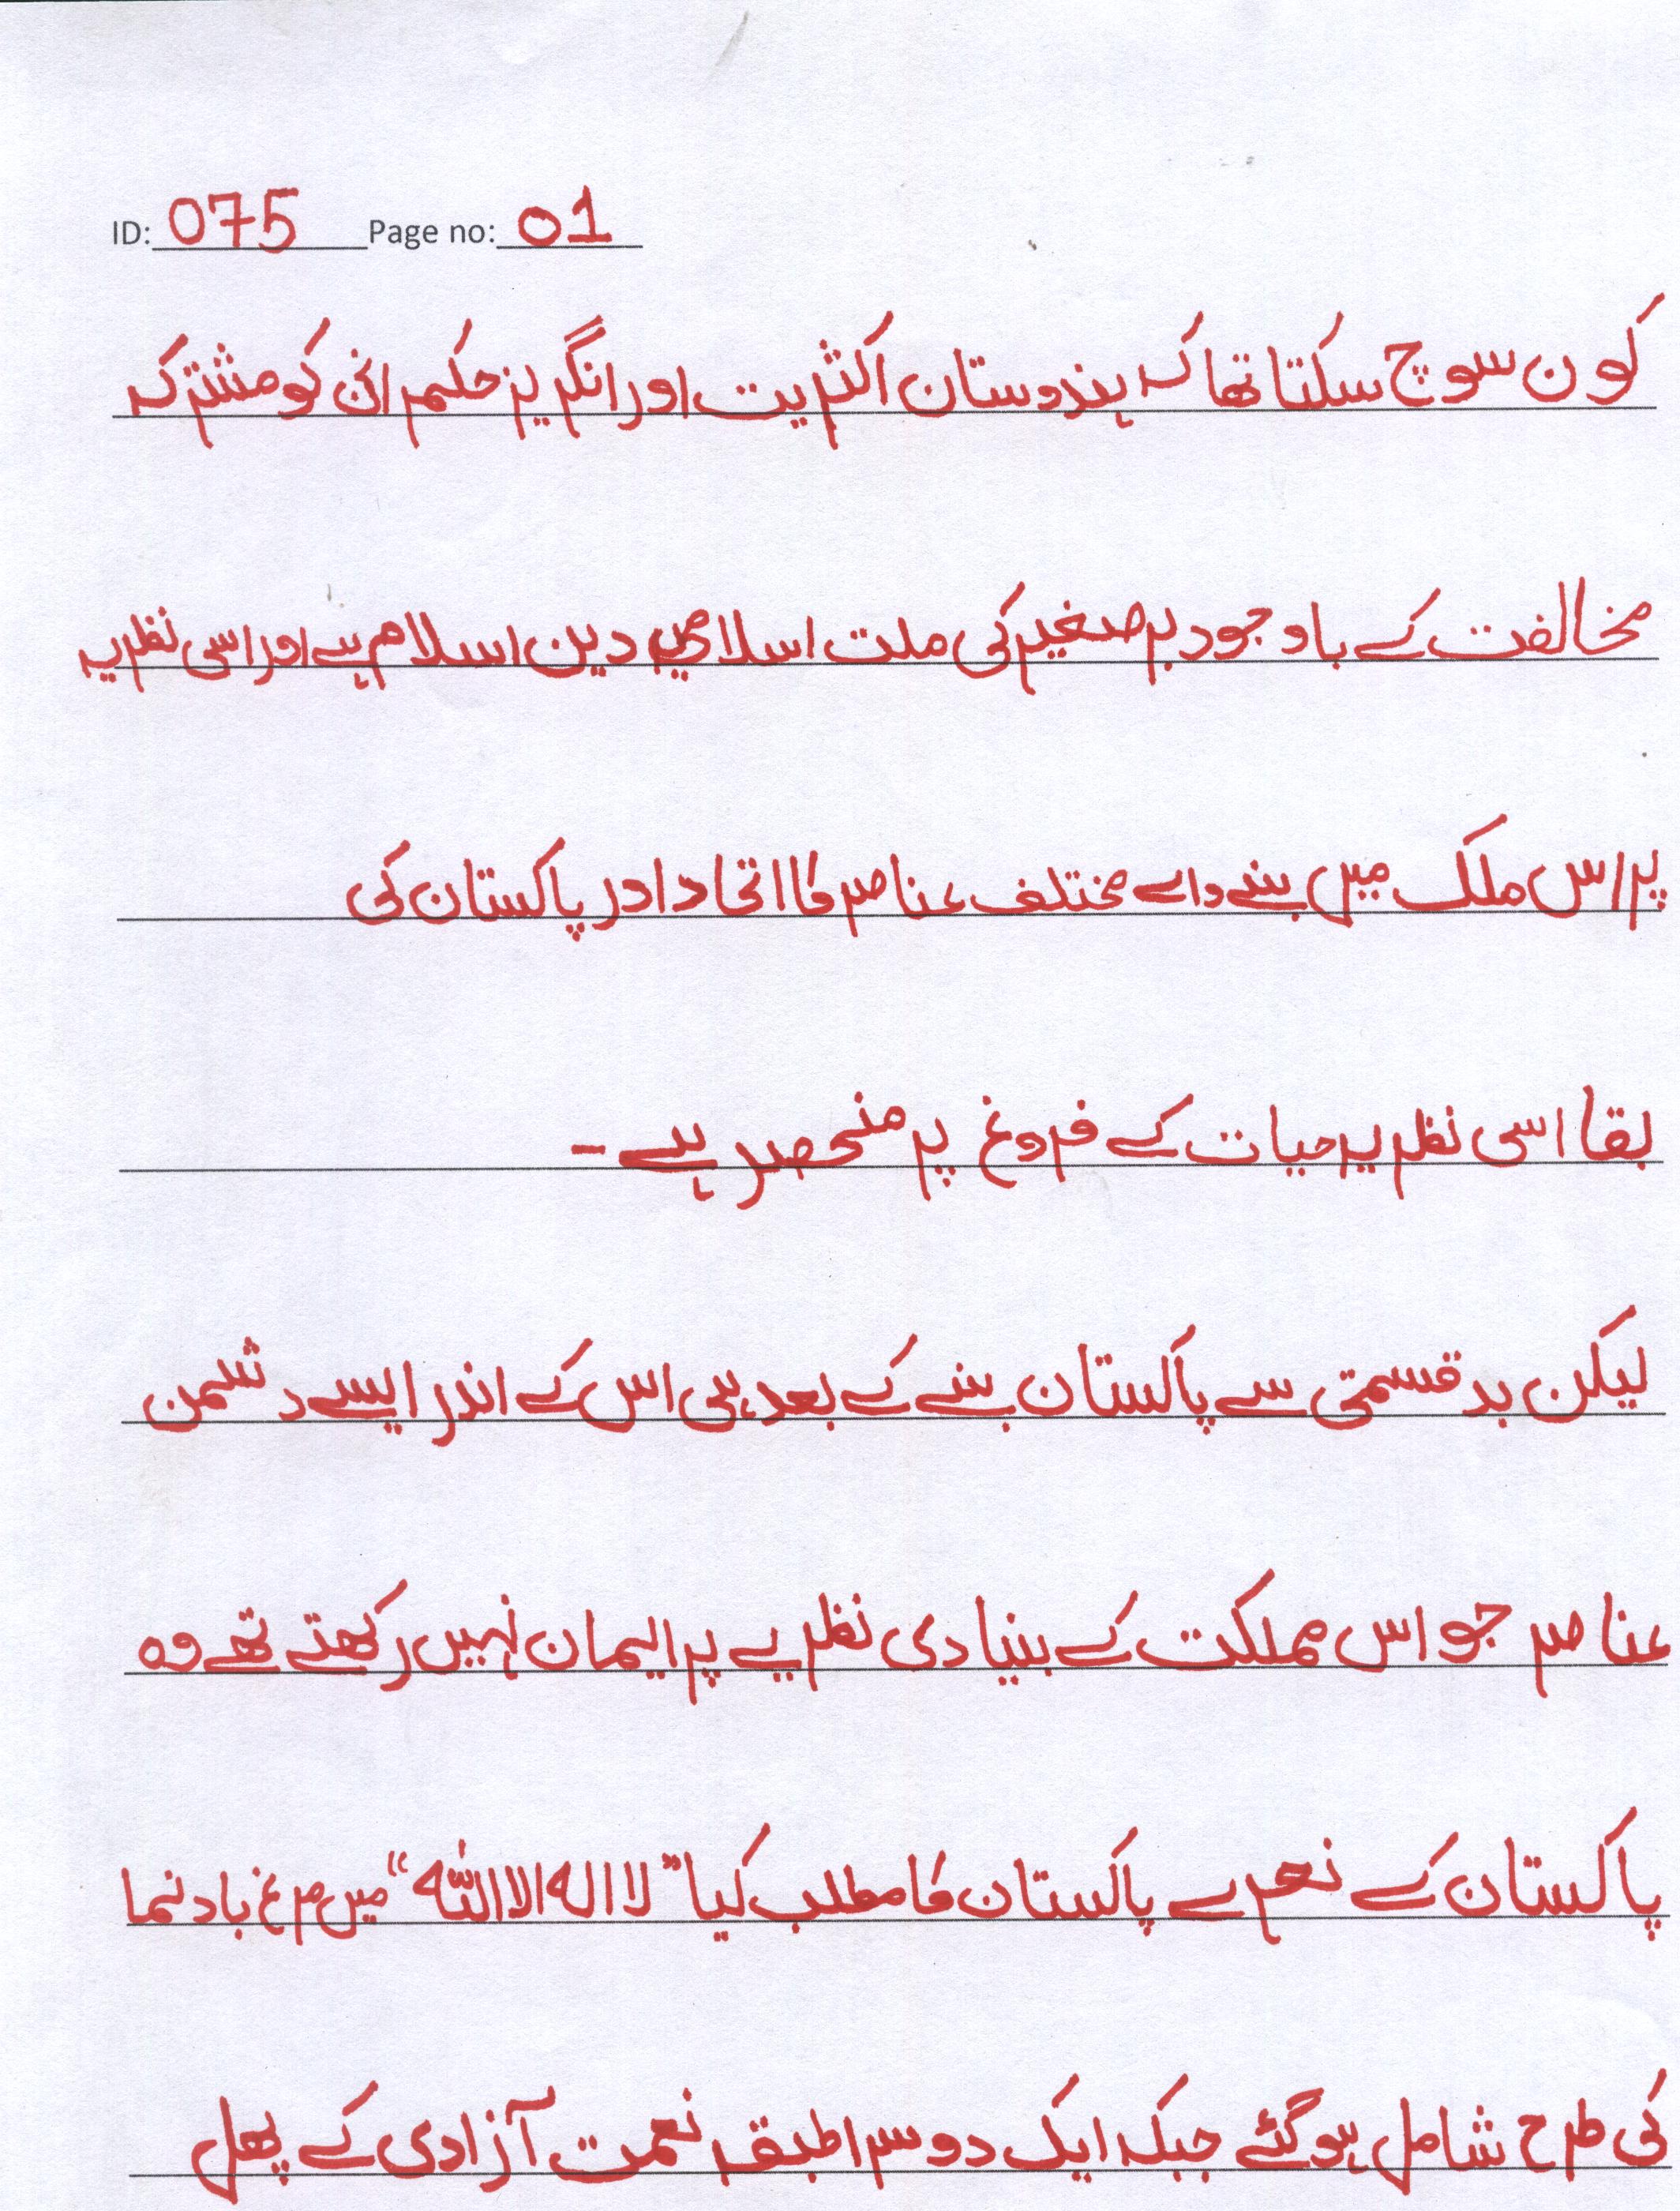 ID: 075 Page no: 01
کون سوچ سکتا تھا کہ ہندوستان اکثریت اور انگریز حکمرانی کو مشترکہ
مخالفت کے باوجود برصغیر کی ملت اسلامیہ دین اسلام ہے اور اسی نظریہ
پر اس ملک میں بننے والے مختلف عناصر کا اتحاد اور پاکستان کی
بقا اسی نظریہ حیات کے فروغ پر منحصر ہے -
لیکن بدقسمتی سے پاکستان بننے کے بعد ہی اس کے اندر ایسے دشمن
عناصر جو اس مملکت کے بنیادی نظریے پر ایمان نہیں رکھتے تھے وہ
پاکستان کے نعرے پاکستان کا مطلب کیا "لا الہ الا اللّٰہ" میں مرغ بادنما
کی طرح شامل ہو گئے جبکہ ایک دوسرا طبقہ نعمت آزادی کے پھل